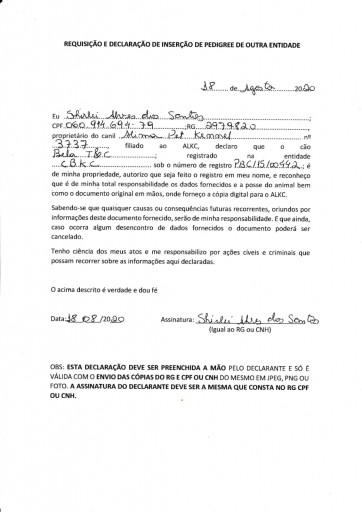 REQUISIÇÃO E DECLARAÇÃO DE INSERÇÃO DE PEDIGREE DE OUTRA ENTIDADE
18 de Agosto 2020
Eu Shirlei Alves dos Santos
CPF 060.914.694-79 RG 2979820
proprietário do canil Pet Kennel nº
3737 filiado ao ALKC, declaro que o cão
Bela T&C registrado na entidade
CBKC sob o número de registro PBC/15/00442; é
de minha propriedade, autorizo que seja feito o registro em meu nome, e reconheço
que é de minha total responsabilidade os dados fornecidos e a posse do animal bem
como o documento original em mãos, onde forneço a cópia digital para o ALKC.
Sabendo-se que quaisquer causas ou consequências futuras recorrentes, oriundos por
informações deste documento fornecido, serão de minha responsabilidade. E que ainda,
caso ocorra algum desencontro de dados fornecidos o documento poderá ser
cancelado.
Tenho ciência dos meus atos e me responsabilizo por ações cíveis e criminais que
possam recorrer sobre as informações aqui declaradas.
O acima descrito é verdade e dou fé
Data: 18 08 /2020 Assinatura: Shirlei Alves dos Santos
(Igual ao RG ou CNH)
OBS: ESTA DECLARAÇÃO DEVE SER PREENCHIDA A MÃO PELO DECLARANTE E SÓ É
VÁLIDA COM O ENVIO DAS CÓPIAS DO RG E CPF OU CNH DO MESMO EM JPEG, PNG OU
FOTO. A ASSINATURA DO DECLARANTE DEVE SER A MESMA QUE CONSTA NO RG CPF
OU CNH.